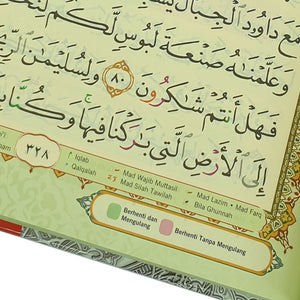 مَعَ دَاوُودَ الْجِبَالَ
وَعَلَّمْنَاهُ صَنْعَةَ لَبُوسٍ لَّكُمْ
فَهَلْ أَنتُمْ شَاكِرُونَ ٨٠ وَلِسُلَيْمَانَ
إِلَى الْأَرْضِ الَّتِي بَارَكْنَا فِيهَا وَكُنَّا
٣٢٨
Iqlab
Qalqalah
Mad Wajib Muttasil
Mad Silah Tawilah
Mad Lazim • Mad Farq
Bila Ghunnah
Berhenti dan
Mengulang
Berhenti Tanpa Mengulang